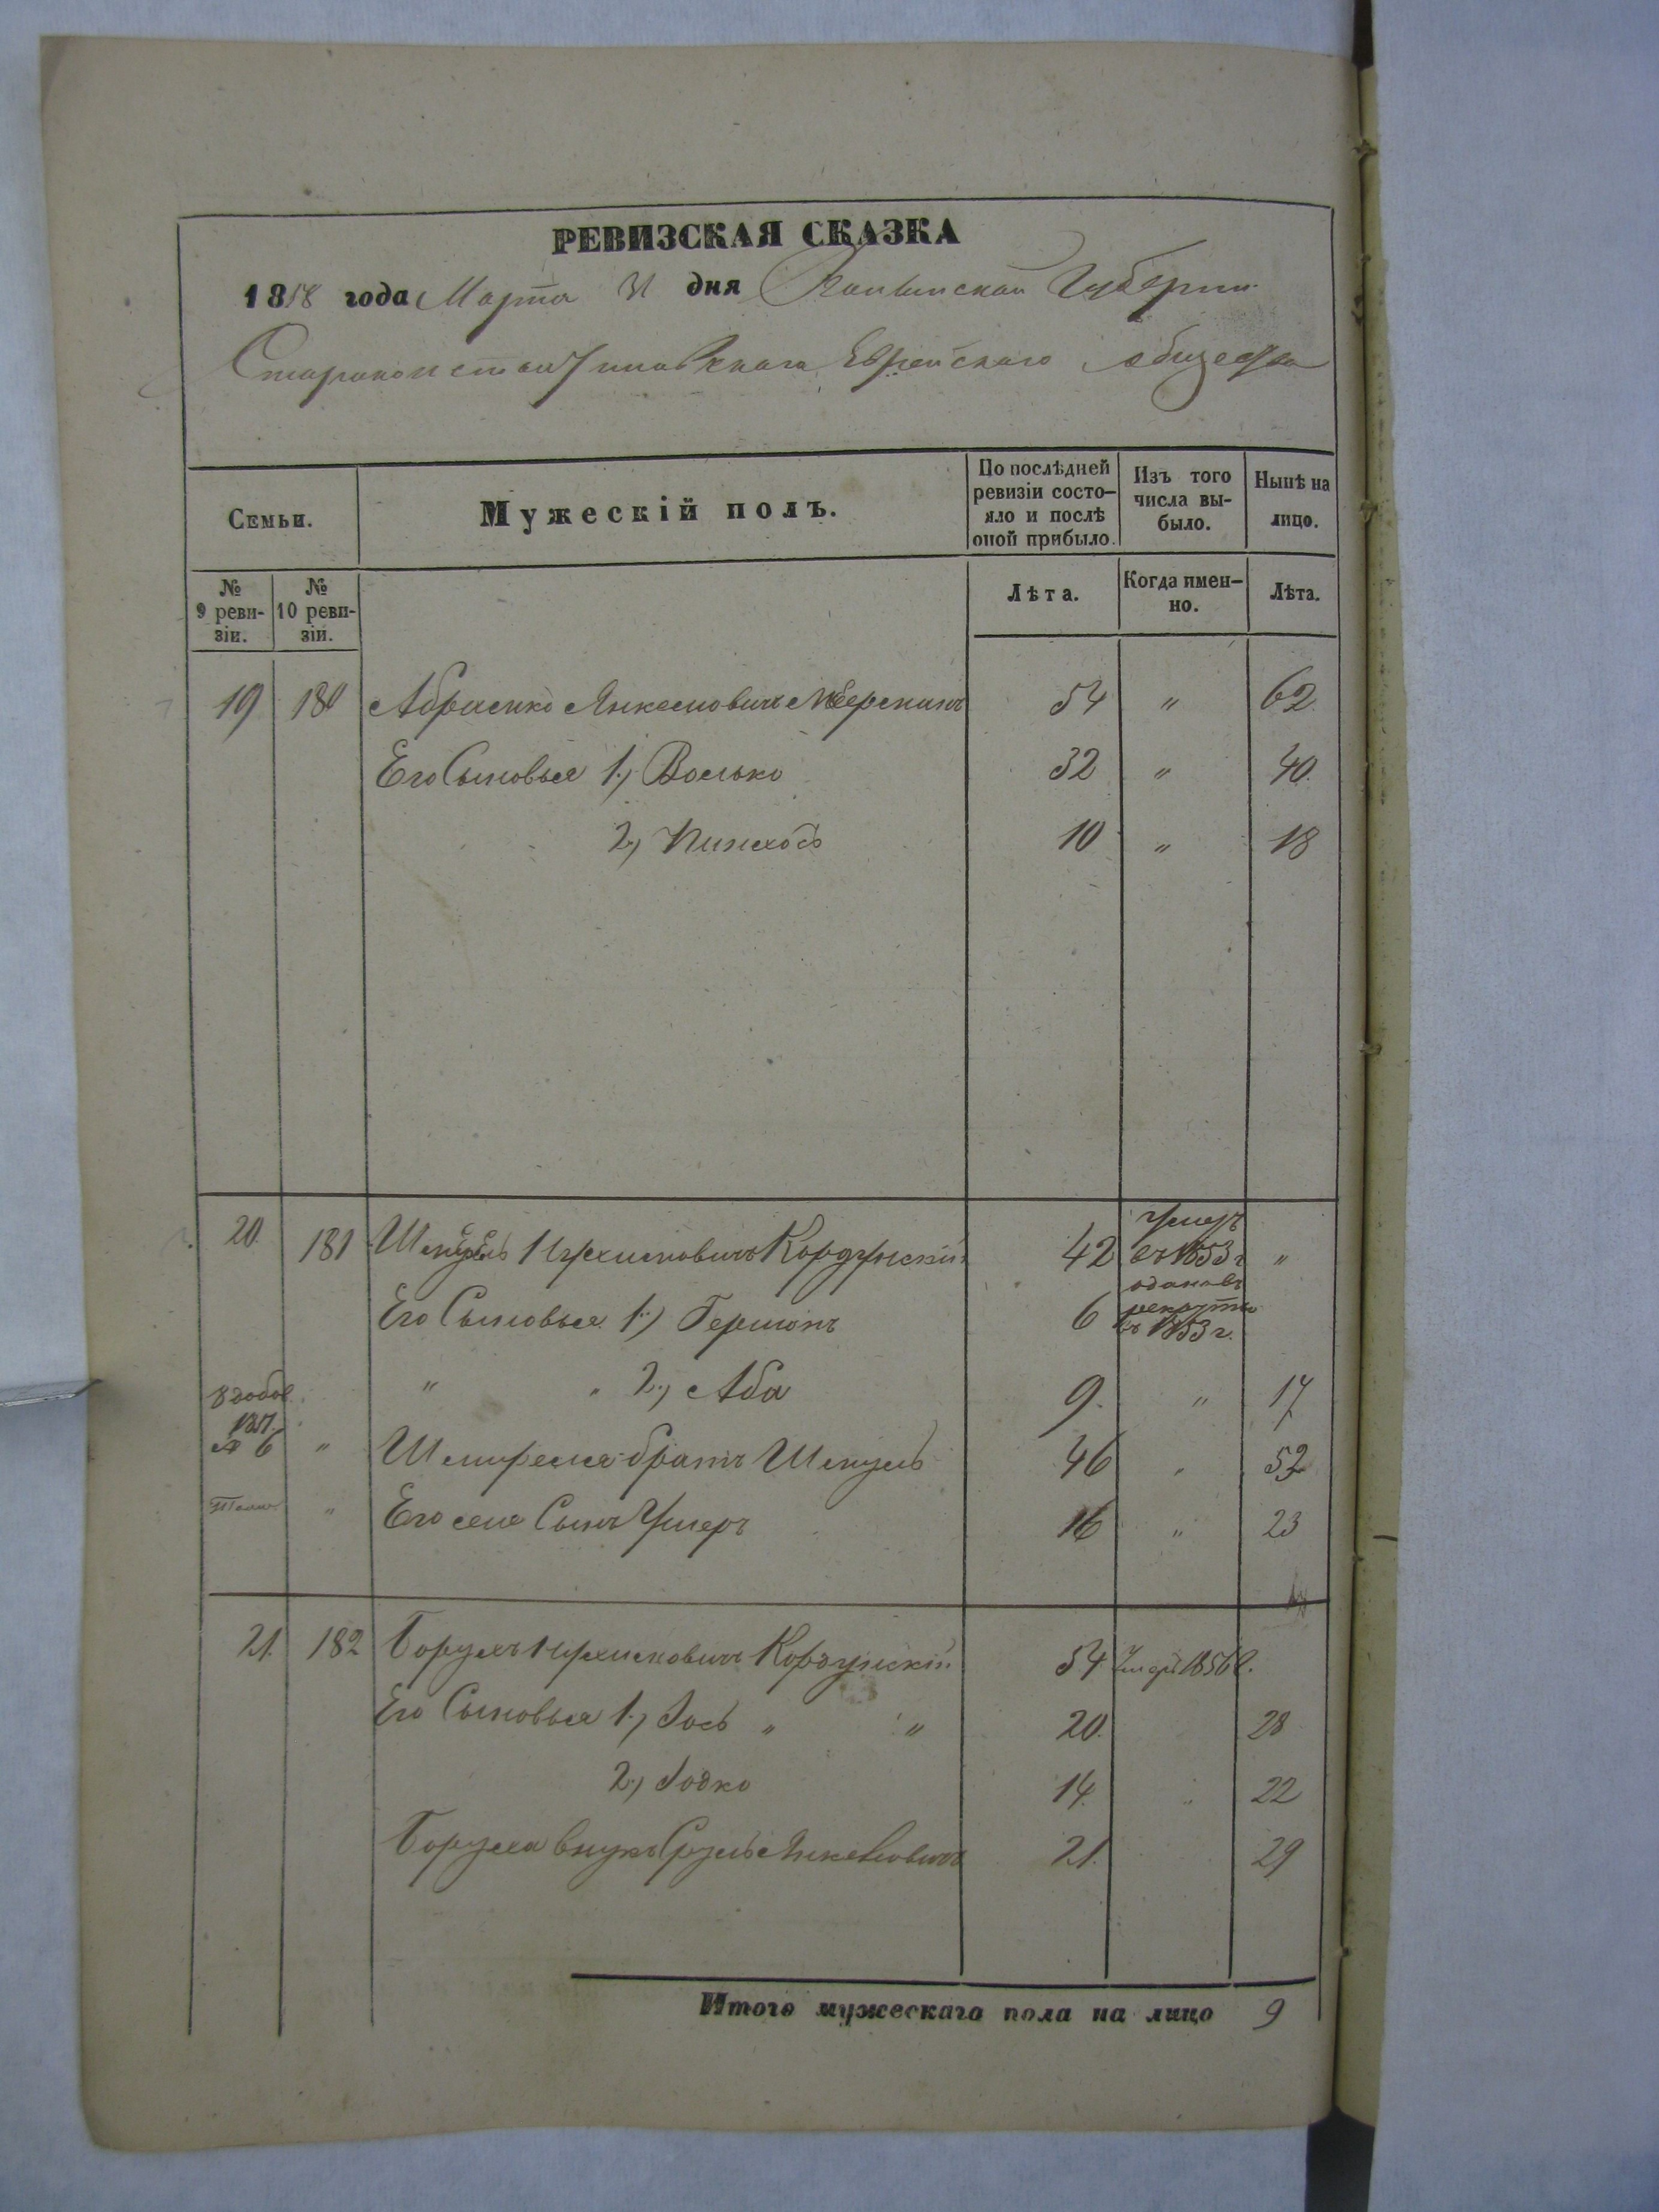 РЕВИЗСКАЯ СКАЗКА
1858 года Марта 31 дня Волынской Губернии
Староконстантиновскаго Еврейского общества
Семьи.
Мужескій полъ.
По послѣдней ревизіи состо-
яло и послѣ оной прибыло.
Изъ того числа вы-
было.
Нынѣ на лицо.
№ 9 реви-
зіи.
№ 10 реви-
зіи.
Лѣта.
Когда имен-
но.
Лѣта.
19 180 Абрамко Янкелиовичъ 54 " 62
Его Сыновья 1.) Волько 32 " 40.
2.) Пинхосъ 10 " 18
20. 181 Шмуль Кордунскій 42 Умеръ въ 1853 г "
Его Сыновья 1.) Гершонъ 6 рекруты въ 1853 г.
" " 2.) Аба 9. " 17
1851. № 6 " братъ Шмуль 46 " 52
" Его же Сынъ Ушеръ 16 " 23
21. 182 Борухъ Кордунскій 54 Умеръ 1856 г.
Его Сыновья 1.) Іось " " 20. 28
2.) Іодко 14. " 22
Боруха внукъ Сруль Янкелиовичъ 21. 29
Итого мужескаго пола на лицо 9